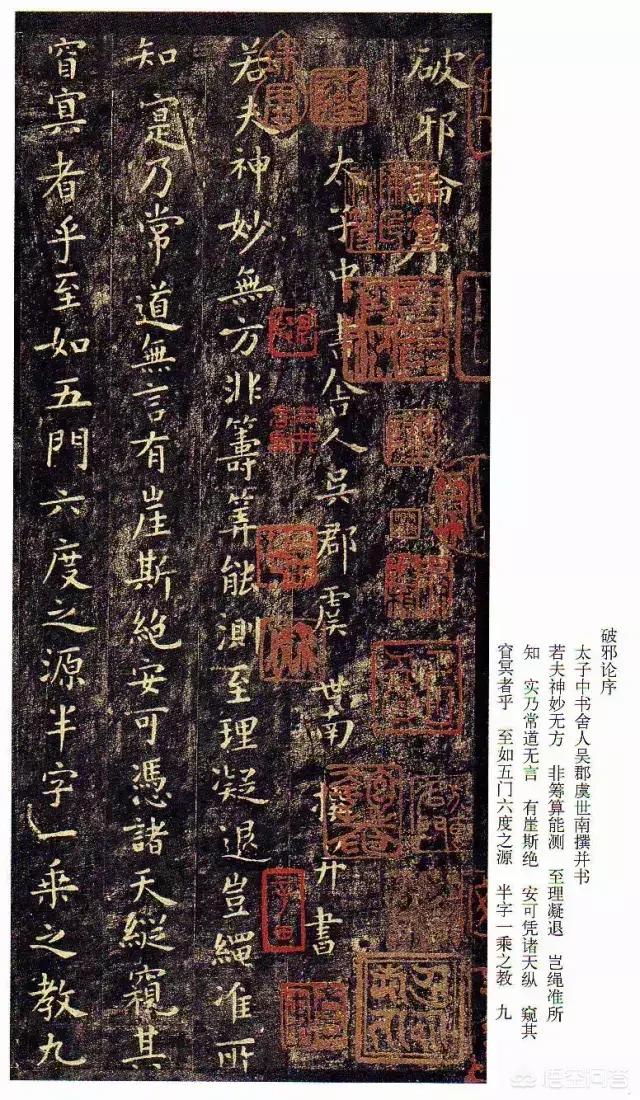 破邪論序
太子中書舍人吳郡虞世南撰并書
若夫神妙無方非籌筭能測至理凝退豈繩准所
知寔乃常道無言有崖斯絶安可憑諸天縱窺其
窅冥者乎至如五門六度之源半字一乘之教九
破邪论序
太子中书舍人吴郡虞世南撰并书
若夫神妙无方 非筹算能测 至理凝退 岂绳准所
知 实乃常道无言 有崖斯绝 安可凭诸天纵 窥其
窅冥者乎 至如五门六度之源 半字一乘之教 九
悟空问答